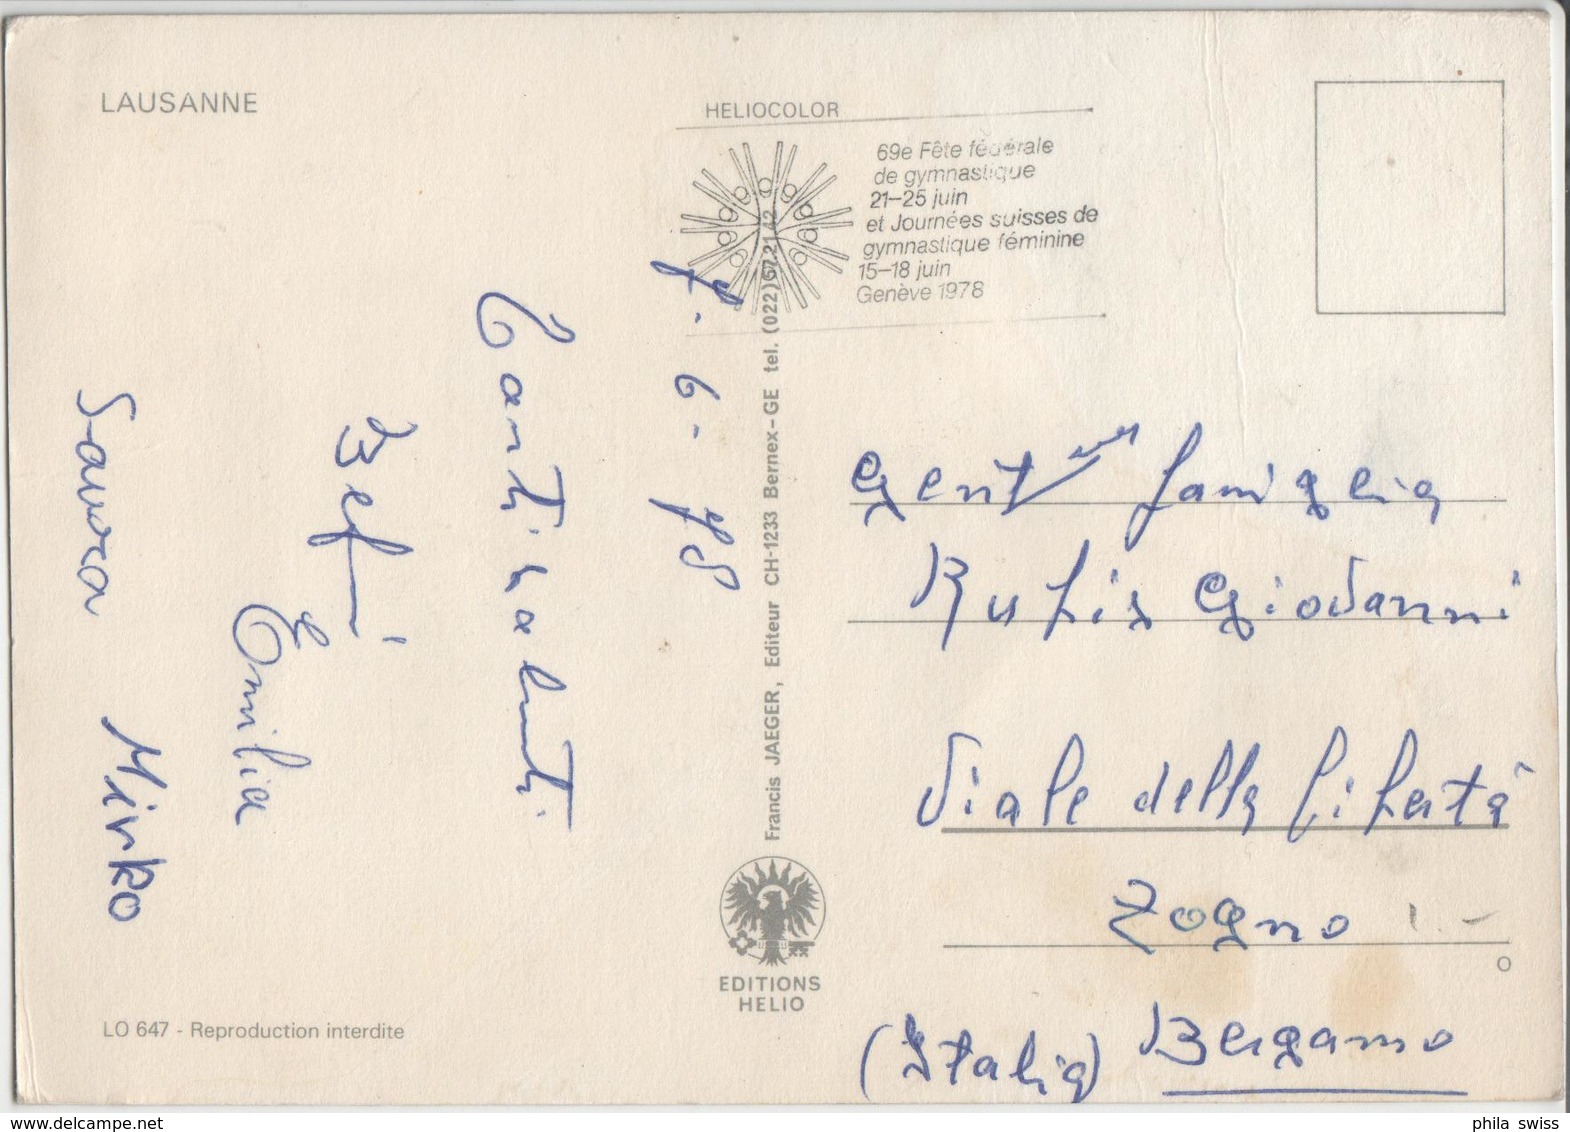 LAUSANNE
HELIOCOLOR
69e Fête fédérale
de gymnastique
21–25 juin
et Journées suisses de
gymnastique féminine
15–18 juin
Genève 1978
7-6-78
Tanti saluti
Bepi
Emilia
Saura Mirko
Francis JAEGER, Editeur CH-1233 Bernex-GE tel. (022) 57.21.42
EDITIONS
HELIO
LO 647 - Reproduction interdite
Gent famiglia
Rubis Giovanni
Viale della Libertà
Zogno
(Italia) Bergamo
phila swiss